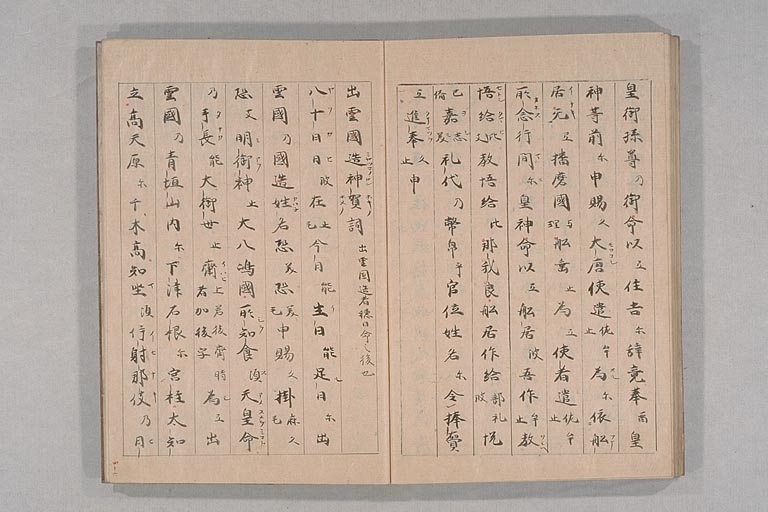 皇御孫尊乃御命以弖住吉尓辞竟奉留皇
神等前尓申賜久大唐使遣佐牟止為尓依船
居无弖播磨國与理船乗止為弖使者遣佐牟止
所念行間尓皇神命以弖船居波吾作牟止教
悟給比教悟給比那我良船居作給部礼波悦
己嘉志美礼代乃幣帛乎官位姓名尓令捧賫
弖進奉久止申
出雲國造神賀詞 出雲國造者穂日命之後也
八十日日波在止毛今日能生日能足日尓出
雲國乃國造姓名恐美恐美毛申賜久掛麻久毛
恐支明御神止大八嶋國所知食須天皇命
乃手長能大御世止齋 若後齋時者加後字 為弖出
雲國乃青垣山内尓下津石根尓宮柱太知
立高天原尓千木高知坐須伊射那伎乃日